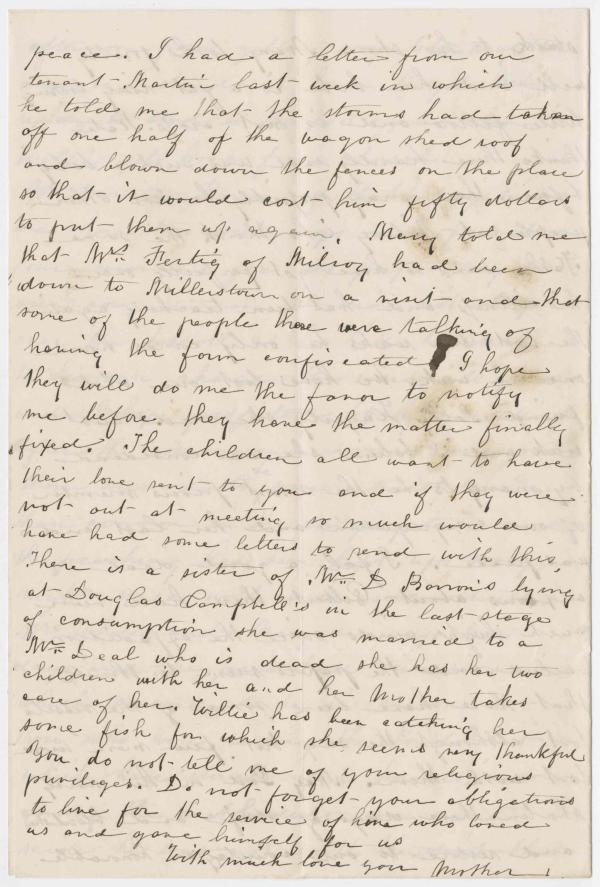 peace. I had a letter from our
tenant Martin last week in which
he told me that the storms had taken
off one half of the wagon shed roof
and blown down the fences on the place
so that it would cost him fifty dollars
to put them up again. Mary told me
that Mrs. Fertig of Milroy had been
down to Millerstown on a visit and that
some of the people there were talking of
having the farm confiscated I hope
they will do me the favor to notify
me before they have the matter finally
fixed. The children all want to have
their love sent to you and if they were
not out at meeting so much would
have had some letters to send with this
There is a sister of Mr. D Barron's lying
at Douglas Campbell's in the last stage
of consumption she was married to a
Mr. Deal who is dead she has her two
children with her and her Mother takes
care of her. Willie has been catching her
some fish for which she seems very thankful
You do not tell me of your religious
privileges. Do not forget your obligations
to live for the service of him who loved
us and gave himself for us
With much love your Mother